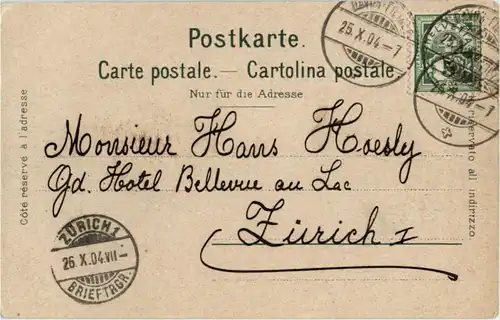 Postkarte.
Carte postale.— Cartolina postale
Nur für die Adresse
Côté réservé à l'adresse
riservato all indirizzo.
Monsieur Hans Hoesly
Gd. Hotel Bellevue au Lac
Zürich I
25.X.04–7
ZÜRICH 1
26.X.04.VII–
BRIEFTRGR.